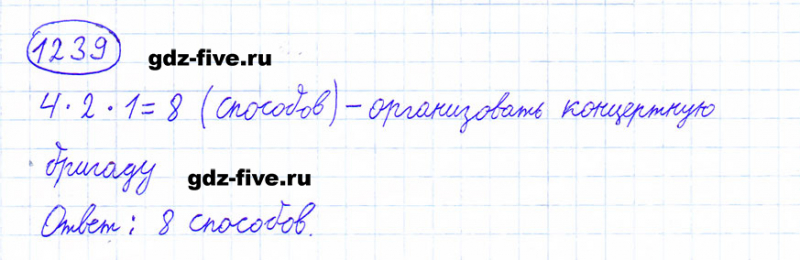 1239 gdz-five.ru
4 · 2 · 1 = 8 (способов) – организовать концертную
бригаду gdz-five.ru
Ответ: 8 способов.